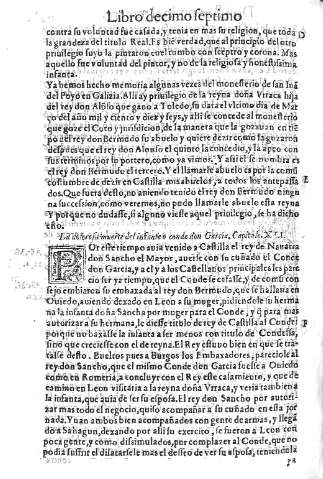 Libro decimo septimo
contra su voluntad fue casada, y tenia en mas su religion, que toda
la grandeza del titulo Real. Es bie verdad, que al principio del otro
priuilegio suyo la pintaron cuel tumbo con sceptro y corona. Mas
aquello fue voluntad del pintor, y no de la religiosa y honestissima
infanta.
Ya hemos hecho memoria algunas vezes del monesterio de san
del Poyo en Galizia. Alli ay priuilegio de la reyna doña Vrraca hija
del rey don Alõso que gano a Toledo, su data el vltimo dia de Mar
ço del año mil y ciento y diez y seys, y alli se concede al monesterio
que goze el Coto y jurisdicion, de la manera que la gozauan en tiẽ
po del rey don Bermudo su abuelo y quiere dezir como la gozaron
despues que el rey don Alonso el quinto la concedio, y la apeo con
sus terminos por su portero, como ya vimos. Y assi el se nombra es
el rey don Bermudo el tercero. Y el llamarle abuelo es por la comũ
costumbre de dezir en Castilla mis abuelos, a todos los antepassa
dos. Que fuera desto, no auiendo tenido el rey don Bermudo ningu
na succession, como veremos, no pudo llamarle abuelo esta reyna
Y porque no dudasse, si alguno viesse aquel priuilegio, se ha dicho
esto.
La desastrada muerte del infante o conde don Garcia, Capitulo. XLI.
POr este tiempo auia venido a Castilla el rey de Nauarra
don Sancho el Mayor, a verse con su cuñado el Conde
don Garcia, y a el y a los Castellanos principales les pare
cio ser ya tiempo, que el Conde se casasse, y de comũ con
sejo embian su embaxada al rey don Bermudo, que se hallaua en
Ouiedo, auiendo dexado en Leon a su muger, pidiendole su herma
na la infanta doña Sancha por muger para el Conde, y q̃ para mas
autorizar a su hermana, le diesse titulo de rey de Castilla al Conde
porque no baxasse la infanta a ser menos con titulo de Condessa,
sino que creciesse con el de reyna. El Rey estuuo bien en que se tra-
tasse desto. Bueltos pues a Burgos los Embaxadores, pareciole al
rey don Sancho, que el mismo Conde don Garcia fuesse a Ouiedo
como en Romeria, a concluyr con el Rey este casamiento, y que de
camino en Leon visitaria a la reyna doña Vrraca, y veria tambien a
la infanta, que auia de ser su esposa. El rey don Sancho por autori-
zar mas todo el negocio, quiso acompañar a su cuñado en esta jor
nada. Yuan ambos bien acompañados con gente de armas, y llega
do a Sahagun, dexando por alli su exercito, se fueron a Leon con
poca gente, y como dissimulados, por complazer al Conde, que no
podia suffrir el dilatarsele mas el desseo de ver su esposa, teniendola